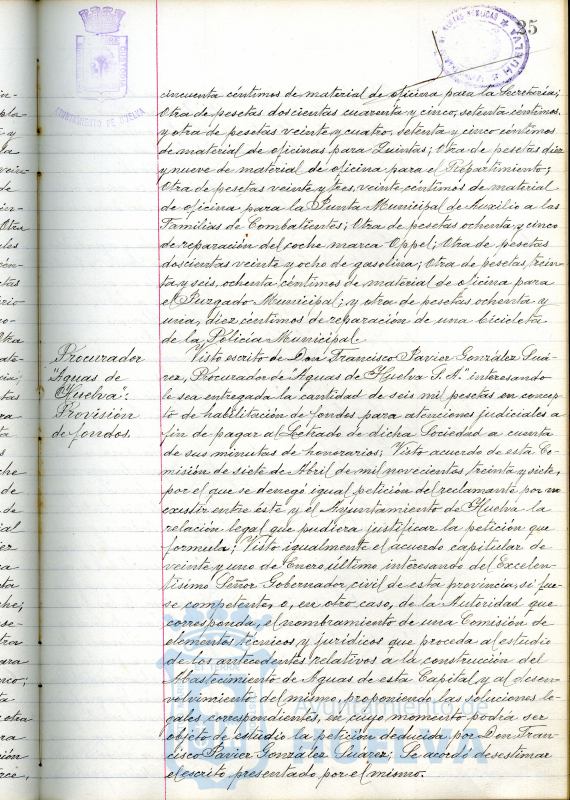 35
AYUNTAMIENTO DE HUELVA
HUELVA
cincuenta céntimos de material de oficina para la Secretaría;
Otra de pesetas doscientas cuarenta y cinco, setenta céntimos,
y otra de pesetas veinte y cuatro, setenta y cinco céntimos
de material de oficinas para Quintas; Otra de pesetas diez
y nueve de material de oficina para el Repartimiento;
Otra de pesetas veinte y tres, veinte céntimos de material
de oficina para la Junta Municipal de Auxilio a las
Familias de Combatientes; Otra de pesetas ochenta y cinco
de reparación del coche marca Oppel; Otra de pesetas
doscientas veinte y ocho de gasolina; Otra de pesetas trein-
ta y seis, ochenta céntimos de material de oficina para
el Juzgado Municipal; y otra de pesetas ochenta y
una, diez céntimos de reparación de una bicicleta
de la Policía Municipal.
Procurador
"Aguas de
Huelva".
Provisión
de fondos.
Visto escrito de Don Francisco Javier González Suá-
rez, Procurador de Aguas de Huelva S. A." interesando
le sea entregada la cantidad de seis mil pesetas en concep-
to de habilitación de fondos para atenciones judiciales a
fin de pagar al Letrado de dicha Sociedad a cuenta
de sus minutas de honorarios; Visto acuerdo de esta Co-
misión de siete de Abril de mil novecientos treinta y siete,
por el que se denegó igual petición del reclamante por no
existir entre éste y el Ayuntamiento de Huelva la
relación legal que pudiera justificar la petición que
formula; Visto igualmente el acuerdo capitular de
veinte y uno de Enero último interesando del Excelen-
tísimo Señor Gobernador civil de esta provincia, si fue-
se competente, o, en otro caso, de la Autoridad que
corresponda, el nombramiento de una Comisión de
elementos técnicos y jurídicos que proceda al estudio
de los antecedentes relativos a la construcción del
Abastecimiento de Aguas de esta Capital y al desen-
volvimiento del mismo, proponiendo las soluciones le-
gales correspondientes, en cuyo momento podría ser
objeto de estudio la petición deducida por Don Fran-
cisco Javier González Suárez; Se acordó desestimar
el escrito presentado por el mismo.
Ayuntamiento de
HUELVA